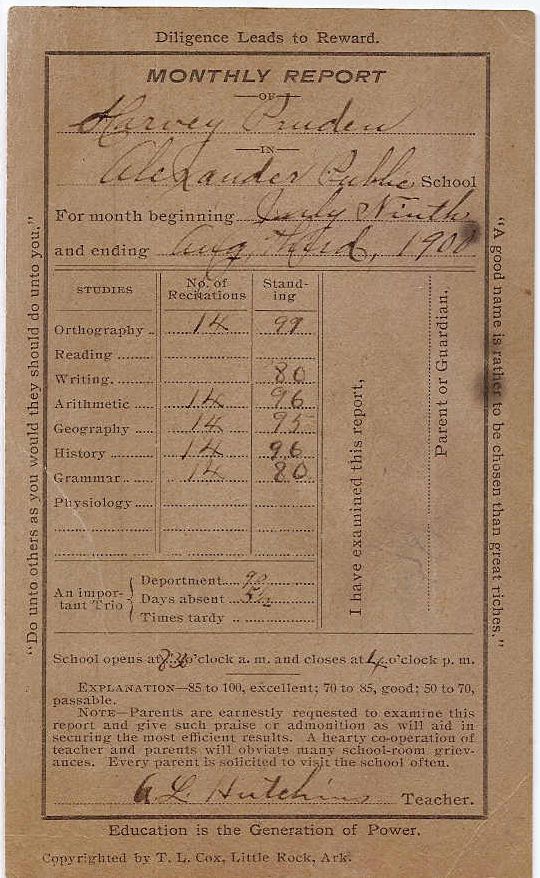 Diligence Leads to Reward.
MONTHLY REPORT
OF
Harvey Pruden
IN
Alexander Public School
For month beginning July Ninth
and ending Aug. third, 1900
STUDIES No. of Recitations Standing
Orthography 14 99
Reading
Writing 80
Arithmetic 14 96
Geography 14 95
History 14 96
Grammar 14 80
Physiology
An important Trio
Deportment 90
Days absent 5½
Times tardy
I have examined this report,
Parent or Guardian.
"Do unto others as you would they should do unto you."
"A good name is rather to be chosen than great riches."
School opens at o'clock a. m. and closes at 4 o'clock p. m.
EXPLANATION—85 to 100, excellent; 70 to 85, good; 50 to 70,
passable.
NOTE—Parents are earnestly requested to examine this
report and give such praise or admonition as will aid in
securing the most efficient results. A hearty co-operation of
teacher and parents will obviate many school-room griev-
ances. Every parent is solicited to visit the school often.
A. L. Hutchins Teacher.
Education is the Generation of Power.
Copyrighted by T. L. Cox, Little Rock, Ark.